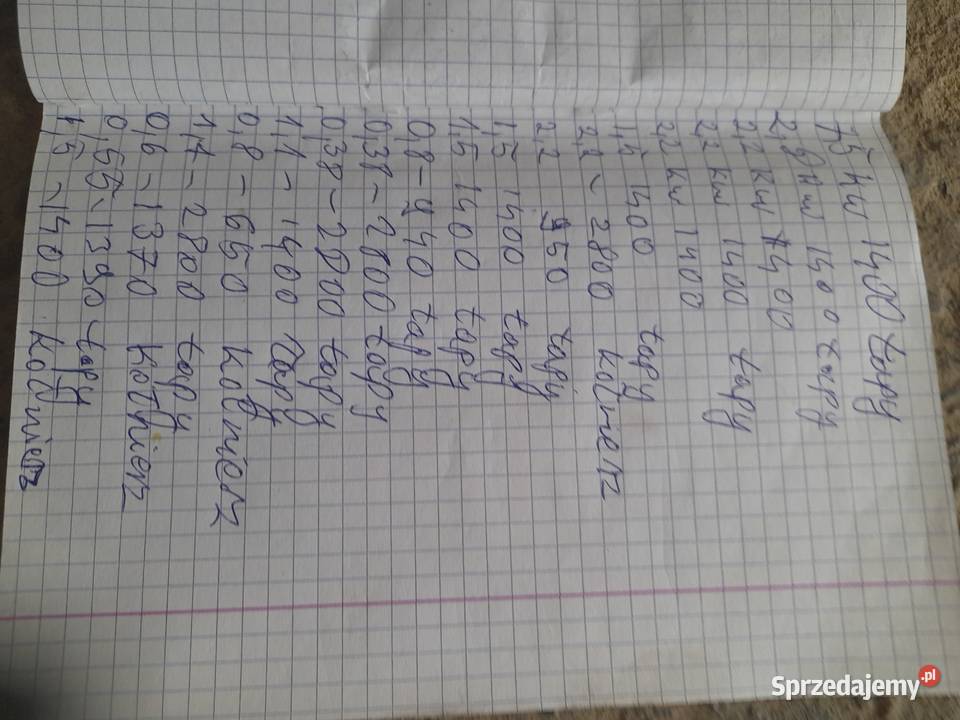 7,5 kW 1400 łapy
2,2 kW 1400 łapy
2,2 kW 1400
2,2 kW 1400 łapy
2,2 kW 1400
1,5 1400 łapy
2,2 - 2800 kołnierz
2,2 950 łapy
1,5 1400 łapy
1,5 1400 łapy
0,8 - 940 łapy
0,38 - 2800 łapy
0,38 - 2800 łapy
1,1 - 1400 łapy
0,8 - 650 kołnierz
1,7 - 2800 łapy
0,6 - 1370 kołnierz
0,55 - 1390 - łapy
1,5 - 1400 kołnierz
Sprzedajemy.pl